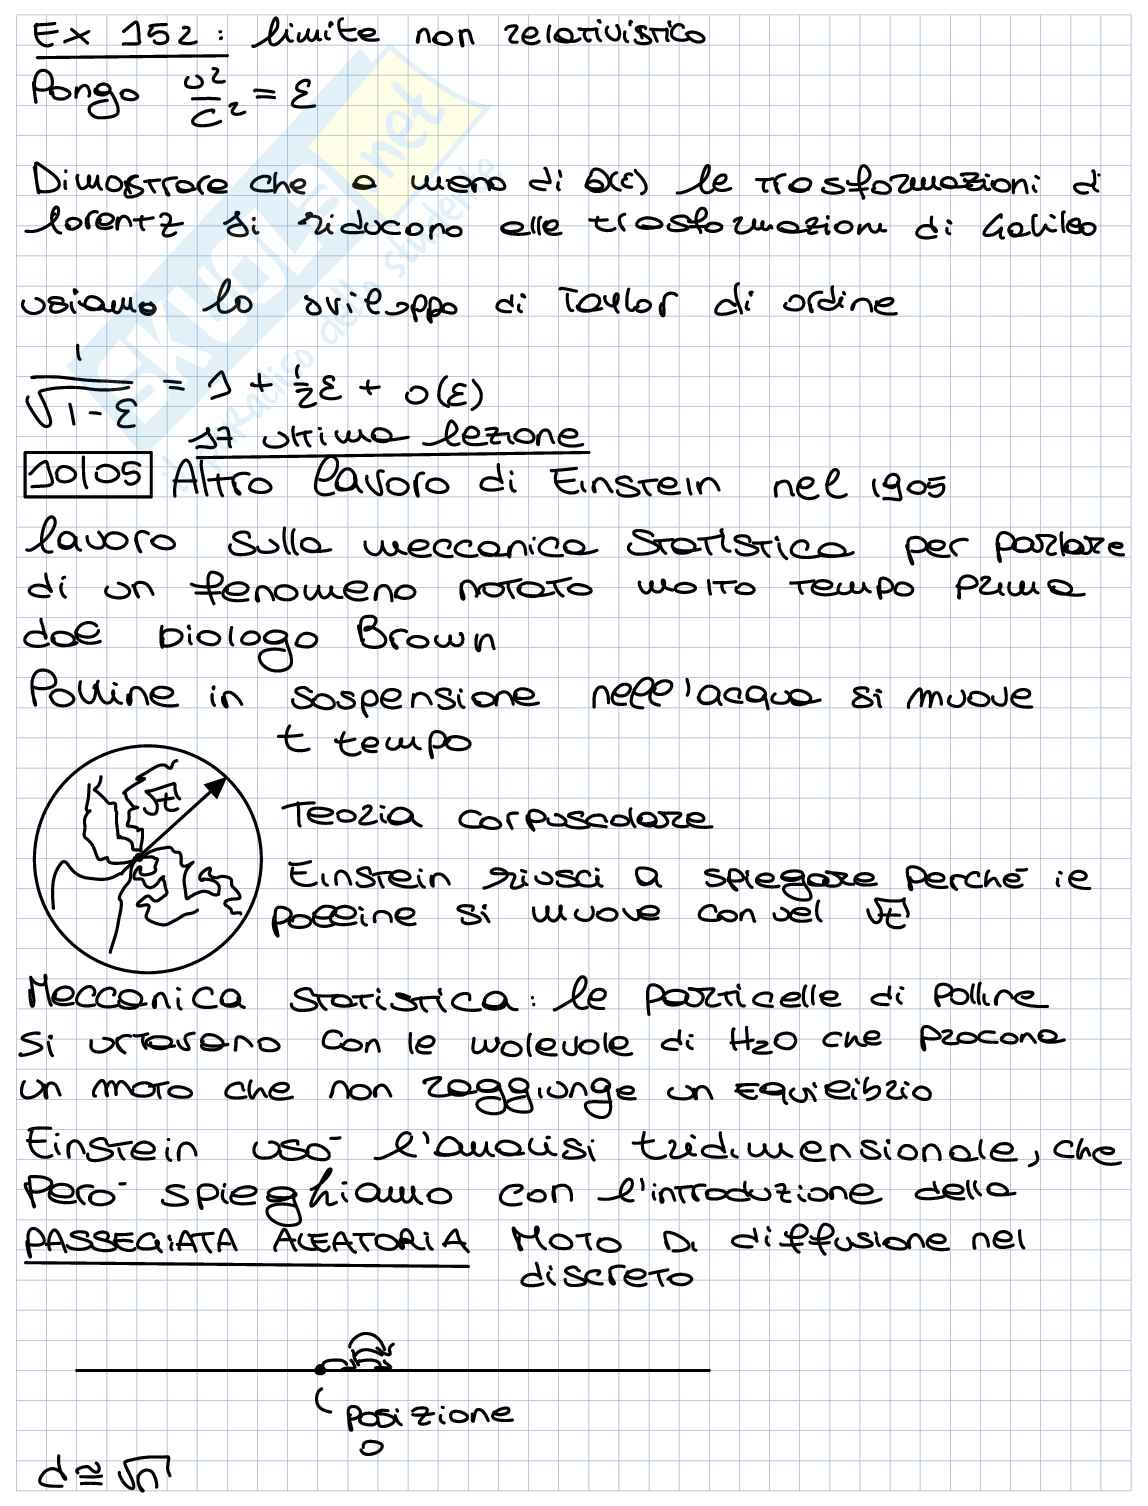 Ex 152: limite non relativistico
Pongo v²/c² = ε
Dimostrare che a meno di O(ε) le trasformazioni di
Lorentz si riducono alle trasformazioni di Galileo
usiamo lo sviluppo di Taylor di ordine
1/√(1-ε) = 1 + ½ε + o(ε)
17 ultima lezione
10/05 Altro lavoro di Einstein nel 1905
lavoro sulla meccanica statistica per parlare
di un fenomeno notato molto tempo prima
dal biologo Brown
Polline in sospensione nell'acqua si muove
t tempo
√t
Teoria corpuscolare
Einstein riuscì a spiegare perché il
polline si muove con vel √t
Meccanica statistica: le particelle di polline
si urtavano con le molecole di H2O che
un moto che non raggiunge un equilibrio
Einstein usò l'analisi tridimensionale, che
però spieghiamo con l'introduzione della
PASSEGIATA ALEATORIA MOTO DI diffusione nel
discreto
posizione
0
d ≅ √n
SKUOLA.net